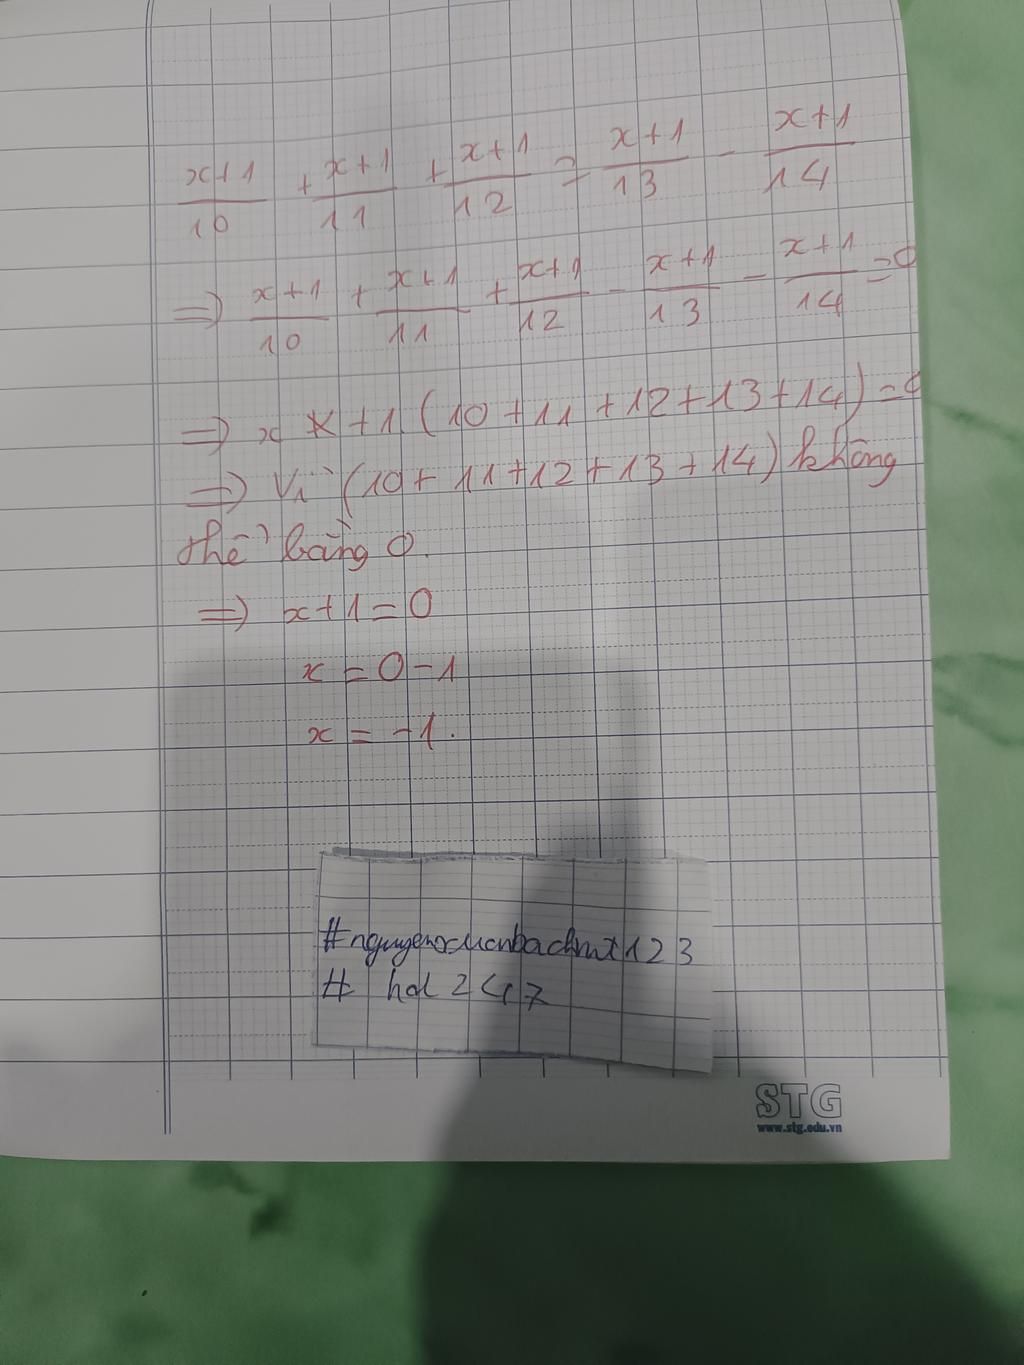 x+1/10 + x+1/11 + x+1/12 = x+1/13 - x+1/14
=> x+1/10 + x+1/11 + x+1/12 - x+1/13 - x+1/14 = 0
=> x x+1 (10+11+12+13+14) = 0
=> Vì (10+11+12+13+14) không
thể bằng 0.
=> x+1=0
x = 0-1
x = -1.
#nguyenxuanbachmt123
# hdl 247
STG
www.stg.edu.vn